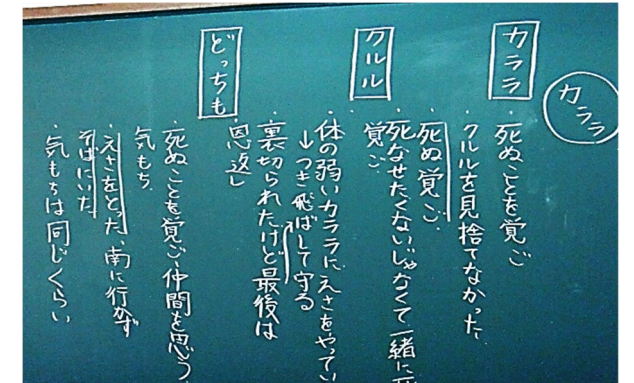 カララ
カララ
・死ぬことを覚ご
・クルルを見捨てなかった
・死ぬ覚ご
死なせたくないじゃなくて一緒に
覚ご
クルル
・体の弱いカララにえさをやってい
↓つき飛ばして守る
裏切られたけど最後は
恩返し
どっちも
・死ぬことを覚ご、仲間を思う
気もち
・えさをとった、南に行かず
そばにいた
・気もちは同じくらい